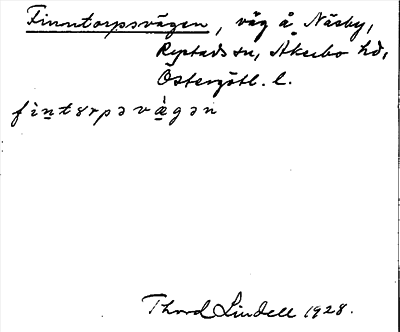 Finntorpsvägen, väg å Näsby,
Rystads sn, Åkerbo hd,
Östergötl. l.
fìntɷrpəvæ̀gən
Thord Lindell 1928.